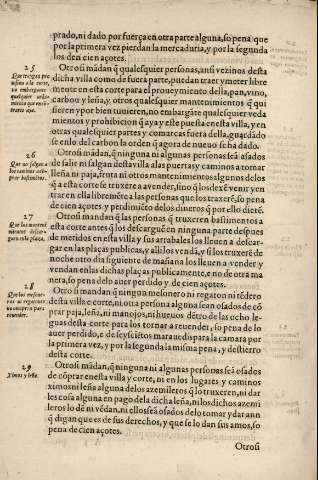 prado, ni dado por fuerça en otra parte alguna, so pena que
por la primera vez pierdan la mercaduria, y por la segunda
los den cien açotes.
25
Otrosi mãdan q̃ qualesquier personas, ansi vezinos desta
dicha villa como de fuera parte, puedan traer y meter libre
mente en esta corte para el proueymiento della, pan, vino,
carbou y leña, y otros qualesquier mantenimientos q̃ qui
sieren y por bien tuuieren, no embargãte qualesquier veda
mientos y prohibicion q̃ aya y este puesta en esta villa, y en
otras qualesquier partes y comarcas fuera della, guardãdo
se enlo del carbon la orden q̃ agora de nueuo se ha dado.
26
Que no salgan a
los caminos a cõ-
prar bastimẽtos.
Otrosi mãdan, q̃ ninguna ni algunas personas seã osados
de salir ni salgan desta villa a las puertas y caminos a tomar
leña ni paja, fruta ni otros mantenimientos algunos delos
q̃ a esta corte se truxere a vender, sino q̃ los dexẽ venir y en
trar en ella libremẽte a las personas que los truxerẽ, so pena
de cien açotes y perdimiẽto delos dineros q̃ por ello dierẽ.
27
Otrosi mandan q̃ las personas q̃ truxeren bastimentos a
esta corte antes q̃ los descarguẽ en ninguna parte despues
de metidos en esta villa y sus arrabales los lleuen a descar-
gar en las plaças publicas, y alli los vendã, y si los truxerẽ de
noche otro dia siguiente de mañana los lleuen a vender y
vendan enlas dichas plaças publicamente, e no de otra ma
nera, so pena de lo auer perdido y de cien açotes.
28
Que los mesone-
ros ni regatones
no compren para
reuender.
Otrosi mandan q̃, ninguno mesonero ni regaton ni rẽdero
desta villa e corte, ni otra persona alguna sean osados de cõ
prar paja, leña, ni manojos, ni hueuos dẽtro de las ocho le
guas desta corte para los tornar a reuender, so pena de lo
auer perdido, e de seys ciẽtos marauedis para la camara por
la primera vez, y por la segunda la misma pena, y destierro
desta corte.
29
Otrosi mãdan, q̃ ninguna ni algunas personas seã osados
de cõprar en esta villa y corte, ni en los lugares y caminos
ximos ni leña alguna delos azemileros q̃ lo truxeren, ni dar
les cosa alguna en pago dela dicha leña, ni los dichos azemi
leros lo dẽ ni vẽdan, ni ellos seã osados de lo tomar y dar aun
q̃ digan que es de sus derechos, y que se lo dan sus amos, so
pena de cien açotes.
Otrosi